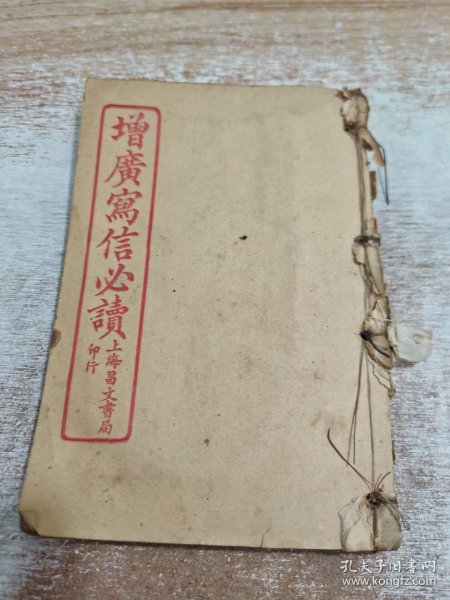 增廣寫信必讀
上海昌文書局
印行
孔夫子旧书网
www.kongfz.com